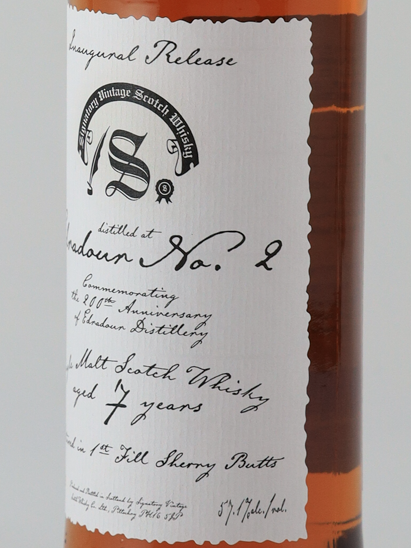 Inaugural Release
Signatory Vintage Scotch Whisky
S
8
distilled at
dradour No. 2
Commemorating
the 200th Anniversary
of Edradour Distillery
Malt Scotch Whisky
aged 7 years
in 1st Fill Sherry Butts
and Bottled in Scotland by Signatory Vintage
Whisky Co. Ltd., Pitlochry PH16 5JP
57.1%alc./vol.